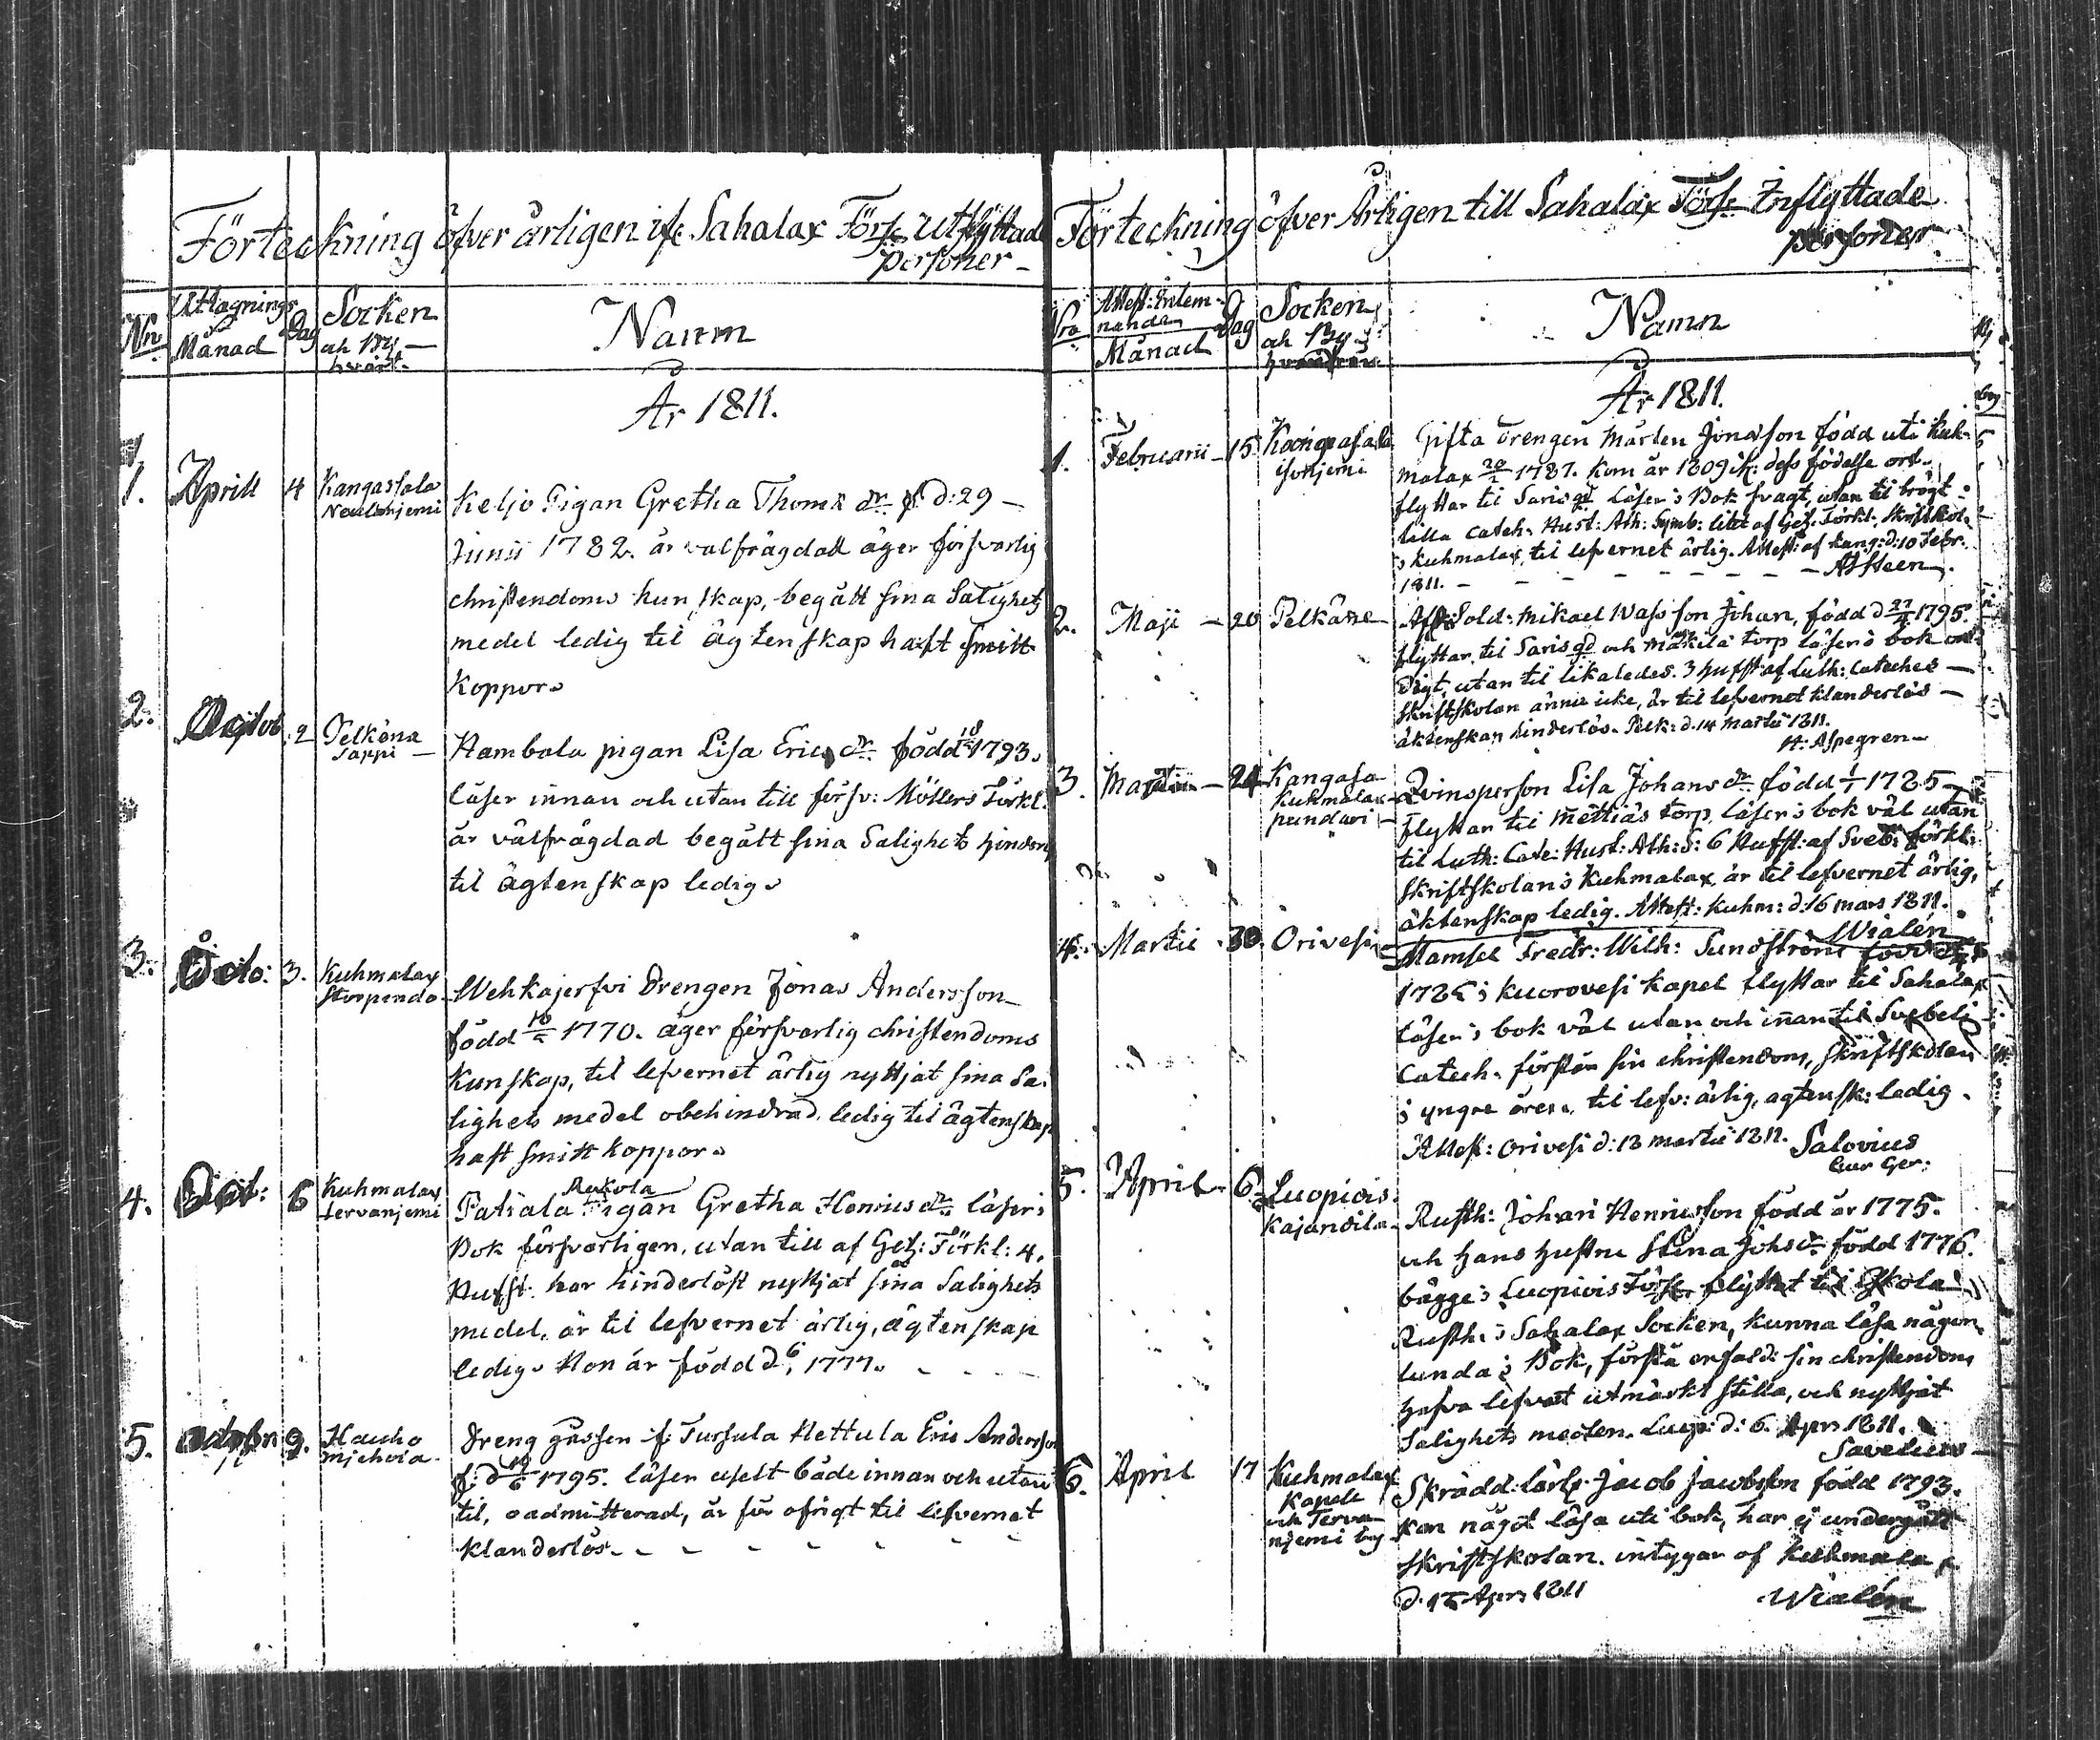 Förteckning öfver årligen ifr Sahalax Förs: Utflyttade
personer
Nr
Uttagnings
Månad
Dag
Socken
och By
hvart
Namn
År 1811.
1. April 4 Kangassala
Keljo Pigan Gretha Thomæ dr f d: 29
Junii 1782. är välfrägdad äger försvarlig
christendoms kunskap, begått sina Salighets
medel ledig til ägtenskap haft smitt
koppor.
2. 2 Pelkäna
Sappi
Hambola pigan Lisa Erics dr född 1793.
läser innan och utan till försv: Möllers Förkl.
är välfrägdad begått sina Salighets
til ägtenskap ledig.
3. Dito: 3. Kuhmalax
Wehkajerfvi Drengen Jonas Andersson
född 1770. äger försvarlig christendoms
kunskap, til lefvernet ärlig nyttjat sina Sa-
lighets medel obehindrad. ledig til ägtenskap
haft smitt koppor.
4. Dito: 6 Kuhmalax
Pervanjemi
Rukola
Patiala Pigan Gretha Henrics dr läser i
Bok försvarligen, utan till af Getz: Förkl: 4.
Hufst. har hinderlöst nyttjat sina Salighets
medel, är til lefvernet ärlig, ägtenskap
ledig. Hon är född d 6, 1777.
5. 9. Hauho
Dreng gåssen fr Tursula Hettula Eric Andersson
f: d 1795. läser uselt både innan och utan
til, oadmitterad, är för öfrigt til lefvernet
klanderlös.
Förteckning öfver Årligen till Sahalax Förs: Inflyttade
personer
Nro
Attest: Inlem-
nande
Månad
Dag
Socken
och By
hvarifrån
Namn
År 1811.
1. Februarii 15 Kangasala
Gifta Drengen Mårten Jonasson född uti Kuh-
malax 1787. kom år 1809 ifr: dess födelse ort.
flyttar til Saris gd läser i Bok svagt, utan til trögt
lilla Catech. Hust: Ath: Symb: litet af Getz. Förkl. Skriftskol.
i Kuhmalax, til lefvernet ärlig. Attest: af Kang: d: 10 Febr.
1811.
2. Maji 20 Pelkäne
Sold: Mikael Wass son Johan, född d 1795.
flyttar til Saris gd och Mäkilä torp läser i bok
utan til likaledes. 3 hufst af Luth: Cateches
Skriftskolan ännu icke, är til lefvernet klanderlös
äktenskap hinderlös. Pelk: d: 14 Martii 1811.
H: Aspegren
3. Martii 24 Kangasa
Kuhmalax
pundari
Qvinsperson Lisa Johans dr född 1785
flyttar til Mettiäs torp, läser i bok väl utan
til Luth: Cate: Hust: Ath: S: 6 Hufst: af Sveb: förkl:
Skriftskolan i Kuhmalax, är til lefvernet ärlig,
äktenskap ledig. Attest: Kuhm: d: 16 mars 1811.
Wialén
4. Martii 30. Orivesi
Mamsel Fredr: Wilh: Sundström född
i Kuorovesi kapel flyttar til Sahalax
läser i bok väl utan och innan til Svebeli
Catech. förstår sin christendom, skriftskolan
i yngre åren, til lefv: ärlig, agtensk: ledig.
Attest: Orivesi d: 13 martii 1811. Salovius
5. April 6. Luopiois
Kajandila
Rusth: Johan Henricsson född år 1775.
och hans hustru Stina Johs dr född 1776.
bägge i Luopiois Förs: flyttat til
Rusth: i Sahalax Socken, kunna läsa någon-
lunda i Bok, förstå enfaldt sin christendom
hafva lefvat utmärkt stilla, och nyttjat
Salighets medlen. Luop: d: 6. Apr 1811.
Savelius
6. April 17 Kuhmalax
kapell
och Terva
njemi by
Skrädd: lärl: Jacob Jacobsson född 1793.
kan något läsa uti bok, har ej undergått
skriftskolan. intygar af Kuhmalax
d. 15 Apr 1811 Wialén